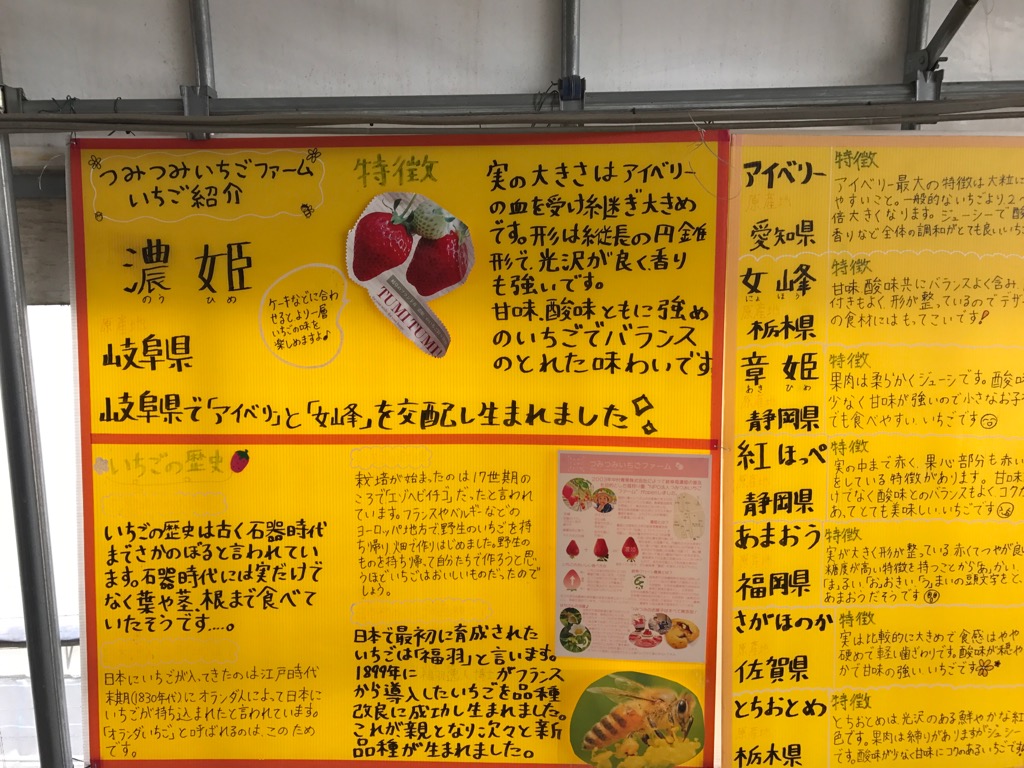 つみつみいちごファーム
いちご紹介
濃姫
のう ひめ
岐阜県
ケーキなどに合わ
せるとより一層
いちごの味を
楽しめますよ♪
特徴
TUMITUMI
実の大きさはアイベリー
の血を受け継ぎ大きめ
です。形は縦長の円錐
形で、光沢が良く、香り
も強いです。
甘味、酸味ともに強め
のいちごでバランス
のとれた味わいです
岐阜県で「アイベリ」と「女峰」を交配し生まれました
いちごの歴史
いちごの歴史は古く石器時代
までさかのぼると言われてい
ます。石器時代には実だけで
なく葉や茎、根まで食べて
いたそうです....。
日本にいちごが入ってきたのは江戸時代
末期(1830年代)にオランダ人によって日本に
いちごが持ち込まれたと言われています。
「オランダいちご」と呼ばれるのは、このため
です。
栽培が始まったのは17世期の
ころで「エゾヘビイチゴ」だったと言われ
ています。フランスやベルギーなどの
ヨーロッパ地方で野生のいちごを持
ち帰り畑で作りはじめました。野生の
ものを持ち帰って自分たちで作ろうと思
うほどいちごはおいしいものだったので
しょう。
日本で最初に育成された
いちごは「福羽」と言います。
1899年に がフランス
から導入したいちごを品種
改良に成功し生まれました。
これが親となり次々と新
品種が生まれました。
つみつみいちごファーム
アイベリー
愛知県
特徴
アイベリー最大の特徴は大粒に
やすいこと。一般的ないちごより2~
倍大きくなります。ジューシーで酸
香りなど全体の調和がとても良いいち
女峰
にょ ほう
栃木県
特徴
甘味、酸味共にバランスよく含み、
付きもよく、形が整っているのでデザ
の食材にはもってこいです!
章姫
あき ひめ
静岡県
特徴
果肉は柔らかくジューシです。酸味
少なく甘味が強いので小さなお子
でも食べやすい、いちごです
紅ほっぺ
静岡県
特徴
実の中まで赤く、果心部分も赤い
をしている特徴があります。甘味
けでなく酸味とのバランスもよくコクが
あってとても美味しい、いちごです
あまおう
福岡県
特徴
実が大きく形が整っている赤くてつやが良
糖度が高い特徴を持つことから「あ」かい、
「ま」るい「お」おきい、「う」まいの頭文字をと、
あまおうだそうです
さがほのか
佐賀県
特徴
実は比較的に大きめで食感はやや
硬めで軽い歯ざわりです。酸味が穏や
かで甘味の強い、いちごです
とちおとめ
栃木県
特徴
とちおとめは光沢のある鮮やかな紅
色です。果肉は練りがありますがジューシー
です。酸味が少なく甘味にコクのあるいちごで